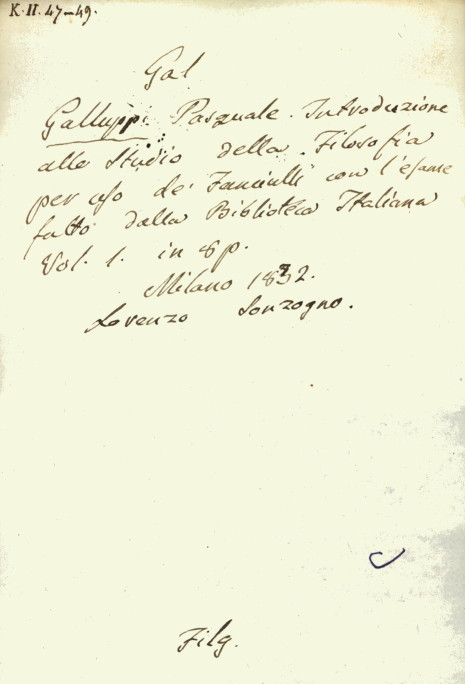 K. II. 47-49.
Gal
Galluppi Pasquale. Introduzione
allo Studio della Filosofia
per uso de' Fanciulli con l'esame
fatto dalla Biblioteca Italiana
Vol. 1. in 8p.
Milano 1832.
Lorenzo Sonzogno.
Filg.